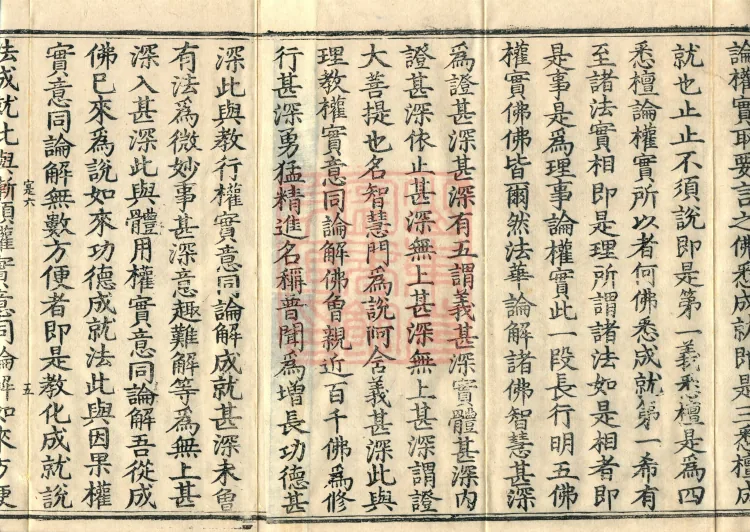 論權實取要言之佛悉成就即是三悉檀成
就也止止不須說即是第一義悉檀是爲四
悉檀論權實所以者何佛悉成就第一希有
至諸法實相即是理所謂諸法如是相者即
是事是爲理事論權實此一段長行明五佛
權實佛佛皆爾然法華論解諸佛智慧甚深
爲證甚深甚深有五謂義甚深實體甚深內
證甚深依止甚深無上甚深無上甚深謂證
大菩提也名智慧門爲說阿含義甚深此與
理教權實意同論解佛曾親近百千佛爲修
行甚深勇猛精進名稱普聞爲增長功德甚
深此與教行權實意同論解成就甚深未曾
有法爲微妙事甚深意趣難解等爲無上甚
深入甚深此與體用權實意同論解吾從成
佛已來爲說如來功德成就法此與因果權
實意同論解無數方便者即是教化成就說
寔六
五
法成就此與漸頓權實意同論解如來方便